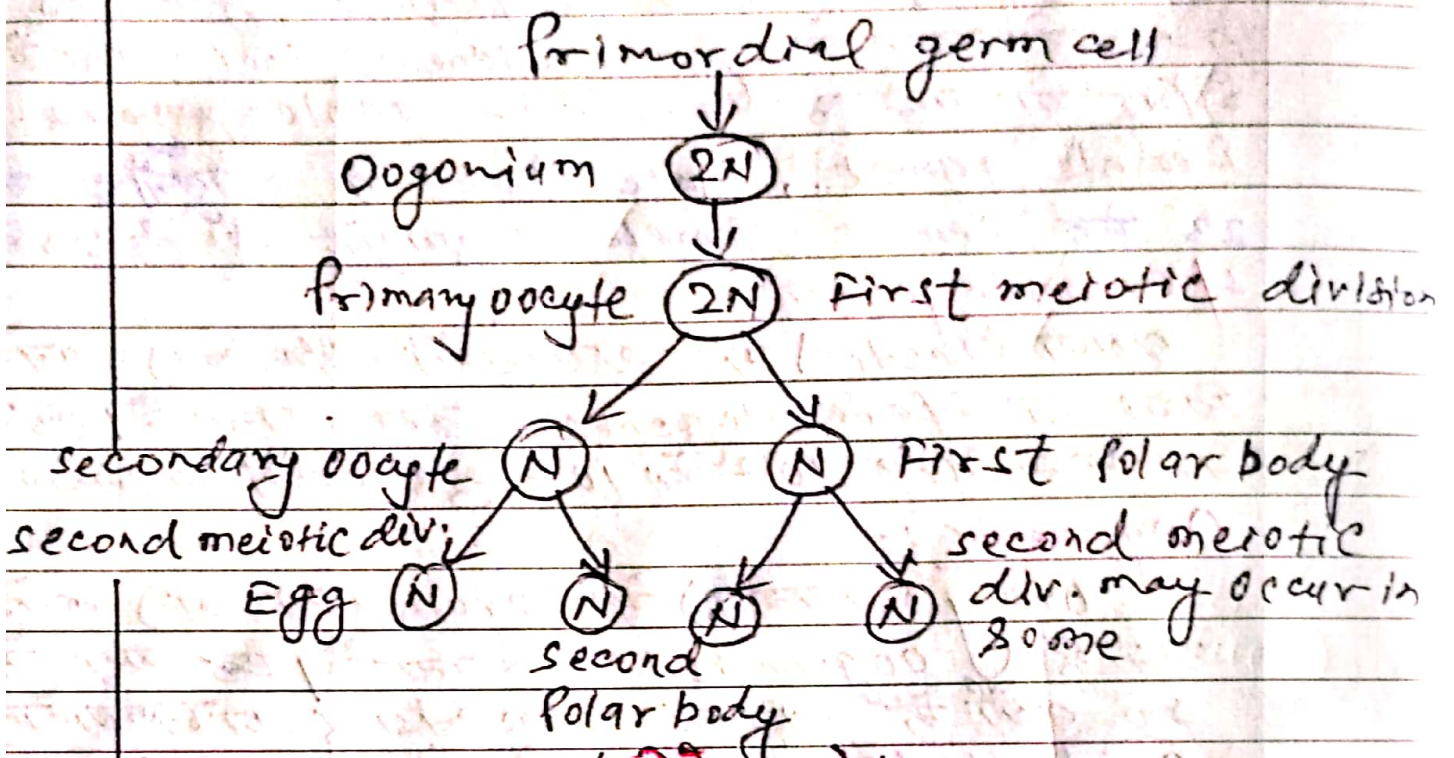 Primordial germ cell
Oogonium 2N
Primary oocyte 2N First meiotic division
secondary oocyte N N First Polar body
second meiotic div. second meiotic
Egg N N N N div. may occur in
second some
Polar body